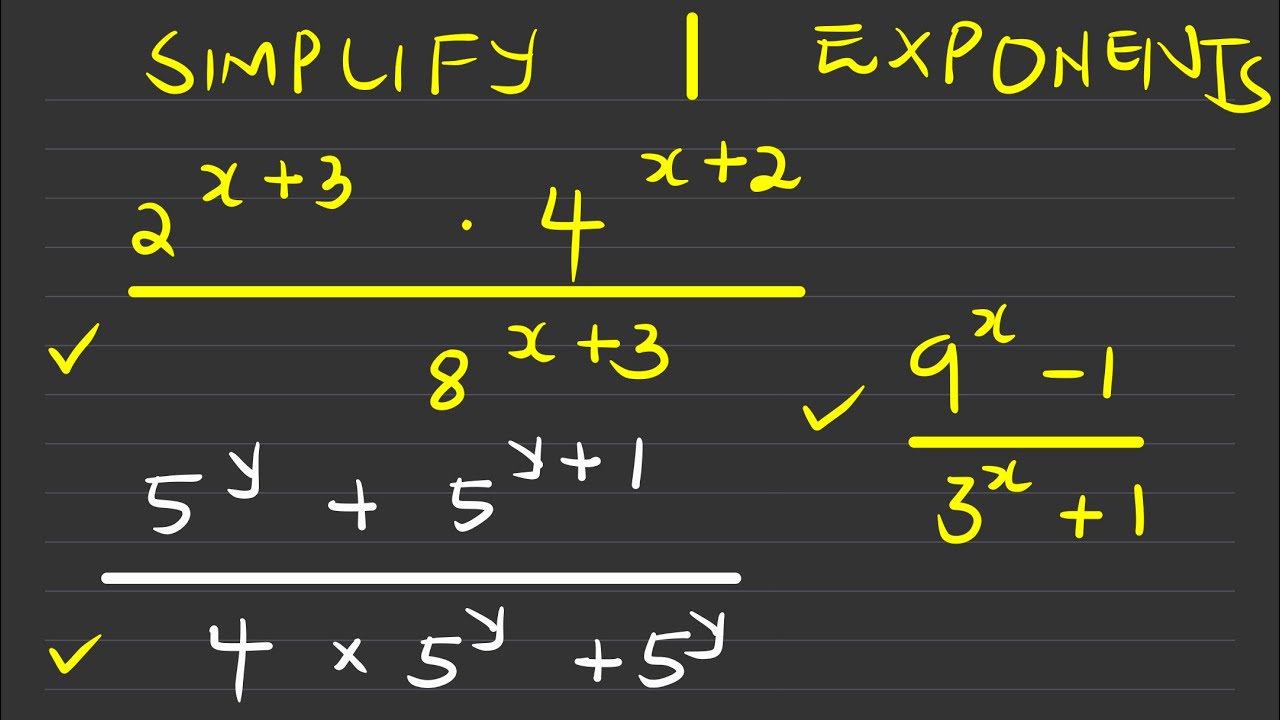 SIMPLIFY | EXPONENTS
2^(x+3) · 4^(x+2)
8^(x+3)
9^x - 1
3^x + 1
5^y + 5^(y+1)
4 × 5^y + 5^y